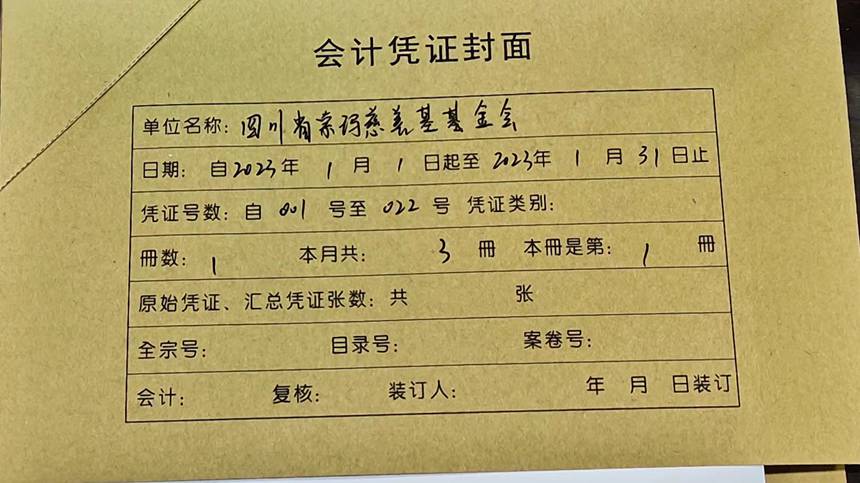 会计凭证封面
单位名称：四川省索玛慈善基基金会
日期：自2023年1月1日起至2023年1月31日止
凭证号数：自001号至022号 凭证类别：
冊数：1 本月共：3冊 本冊是第：1冊
原始凭证、汇总凭证张数：共 张
全宗号： 目录号： 案卷号：
会计： 复核： 装订人： 年 月 日装订